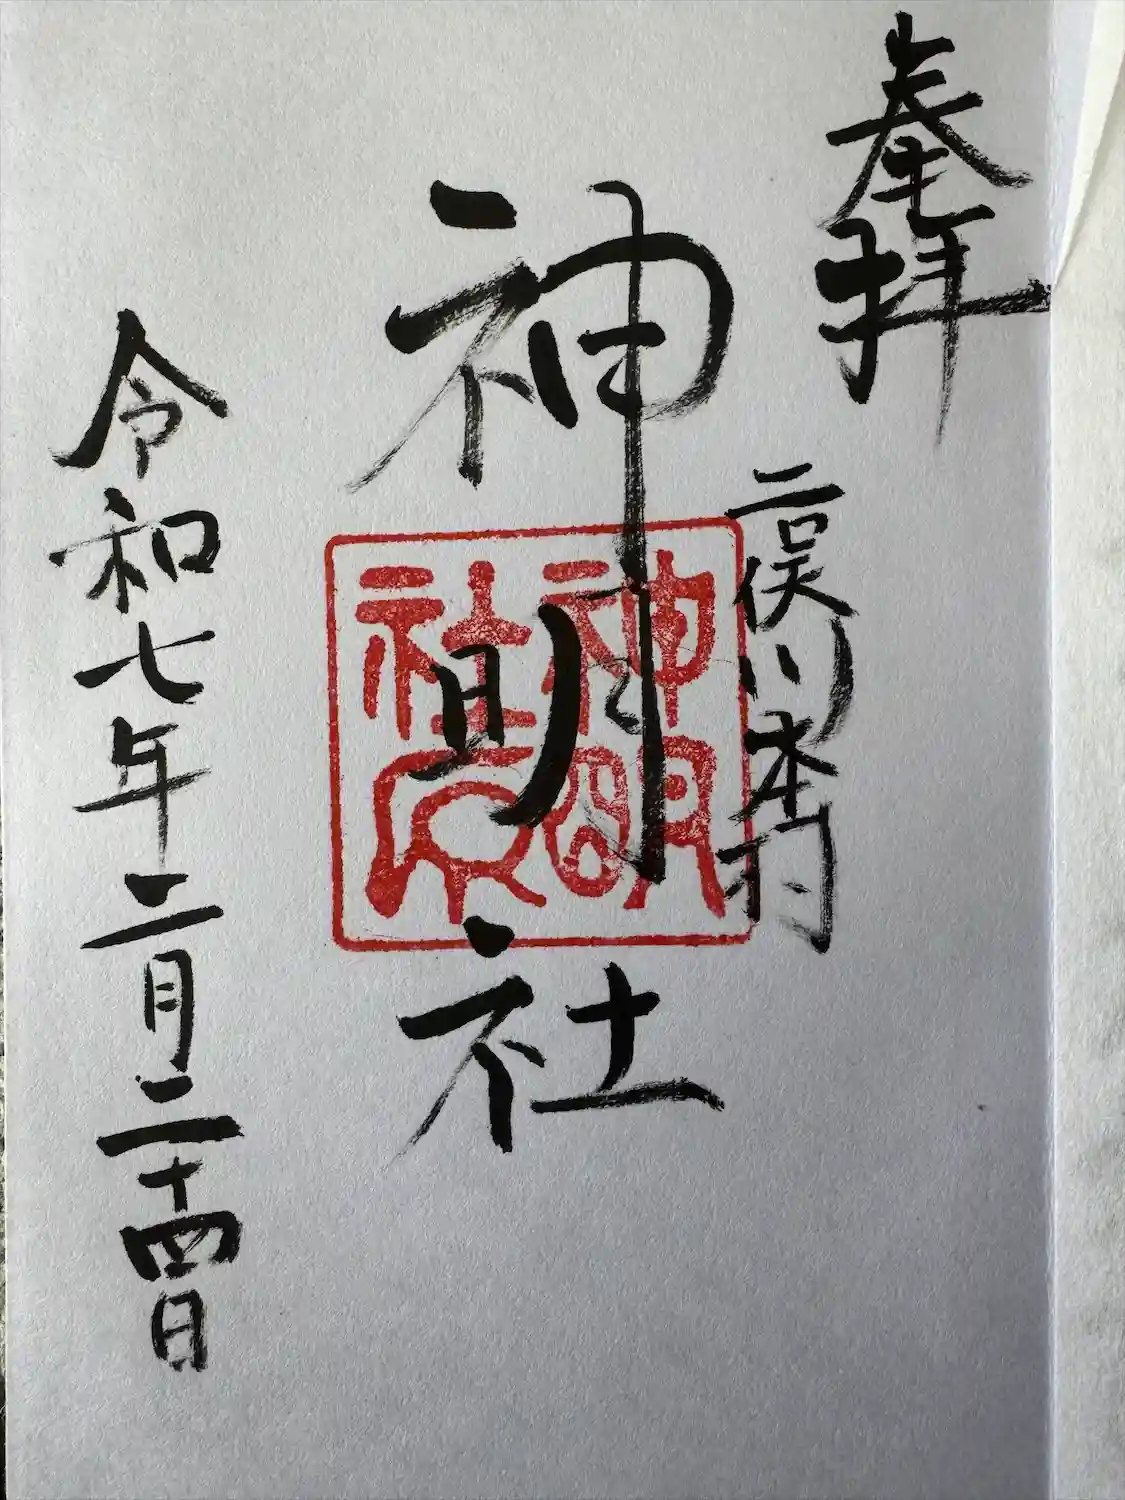 奉拝
二俣川本村
神明社
神明
社
令和七年二月二十四日